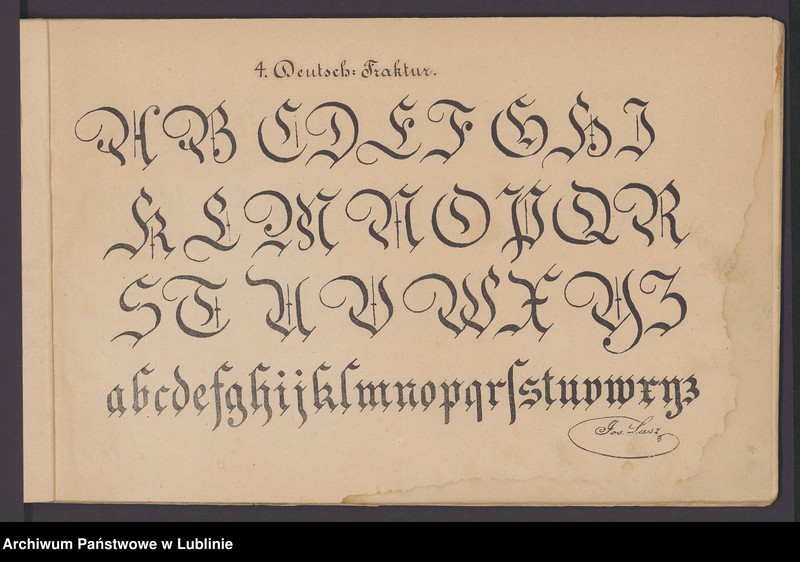 4. Deutsch: Fraktur.
A B C D E F G H I
K L M N O P Q R
S T U V W X Y Z
abcdefghijklmnopqrſstuvwxyz
Jos. Lasz
Archiwum Państwowe w Lublinie